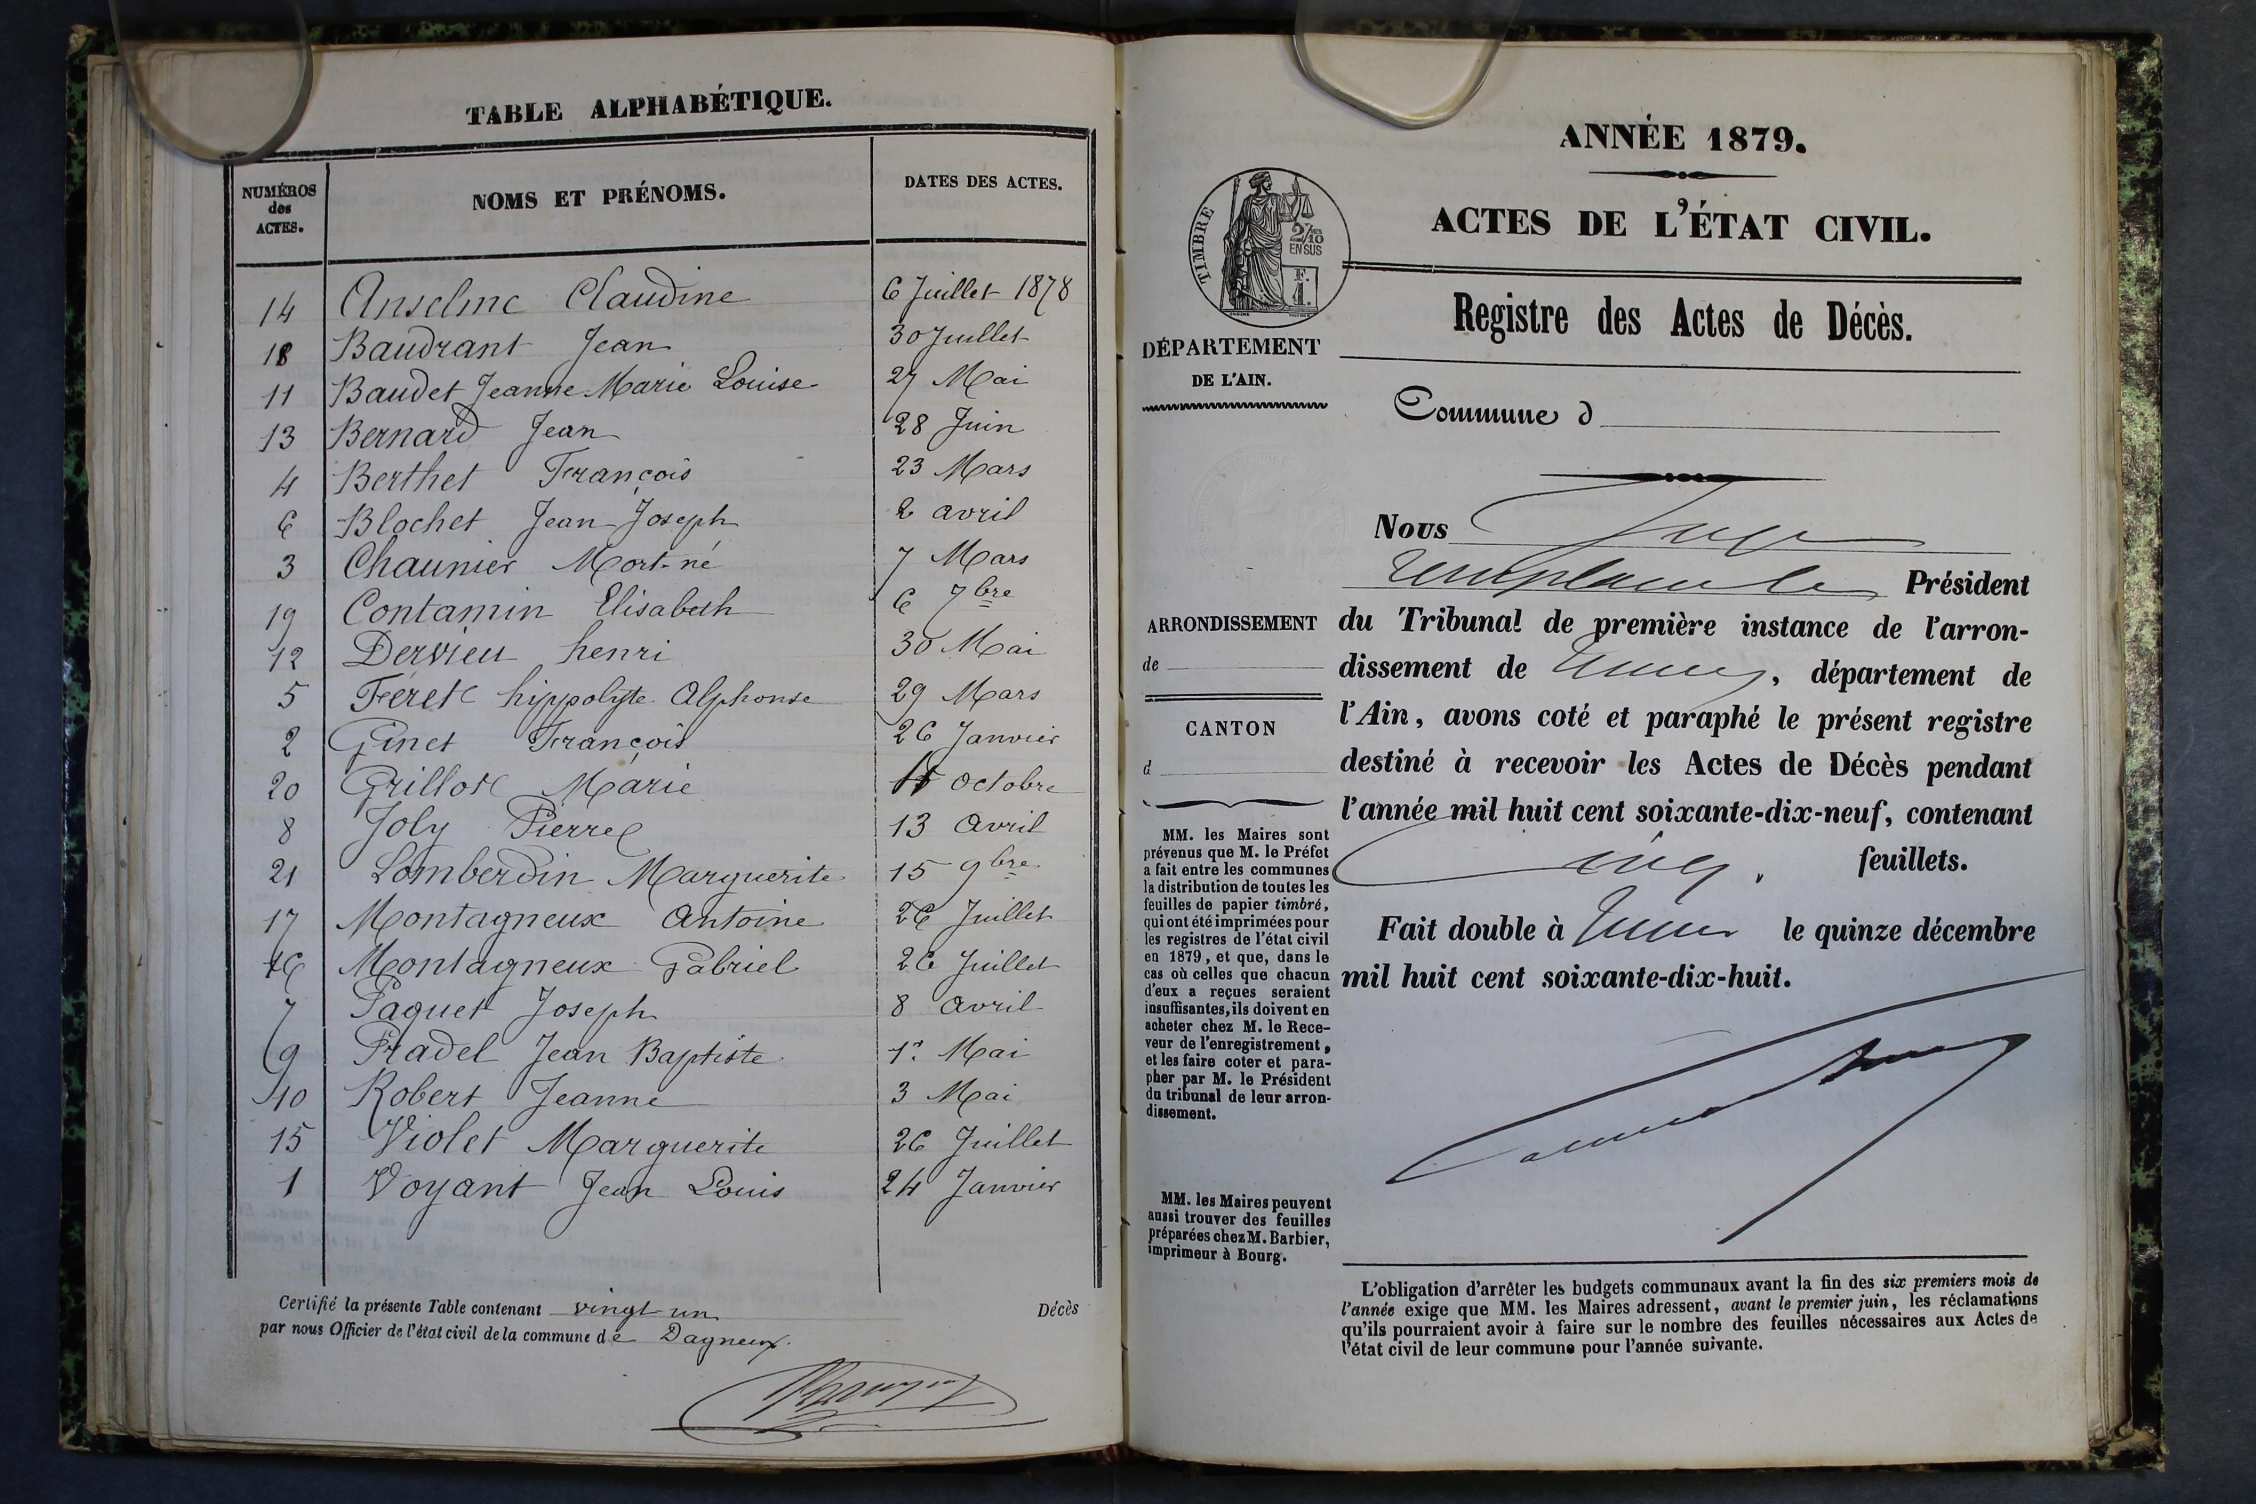 TABLE ALPHABÉTIQUE.
NUMÉROS des ACTES. NOMS ET PRÉNOMS. DATES DES ACTES.
14 Anselme Claudine 6 Juillet 1878
18 Baudrant Jean 30 Juillet
11 Baudet Jeanne Marie Louise 27 Mai
13 Bernard Jean 28 Juin
4 Berthet François 23 Mars
6 Blochet Jean Joseph 2 avril
3 Chaunier Mort-né 7 Mars
19 Contamin Elisabeth 6 7bre
12 Dervieu henri 30 Mai
5 Féret hippolyte Alphonse 29 Mars
2 Ginet François 26 Janvier
20 Grillot Marie octobre
8 Joly Pierre 13 Avril
21 Lomberdin Marguerite 15 9bre
17 Montagneux Antoine 26 Juillet
16 Montagneux Gabriel 26 Juillet
7 Paquet Joseph 8 Avril
9 Pradel Jean Baptiste 1er Mai
10 Robert Jeanne 3 Mai
15 Violet Marguerite 26 Juillet
1 Voyant Jean Louis 24 Janvier
Certifié la présente Table contenant vingt un Décès
par nous Officier de l'état civil de la commune de Dagneux.
ANNÉE 1879.
ACTES DE L'ÉTAT CIVIL.
TIMBRE
2/10
EN SUS
Registre des Actes de Décès.
DÉPARTEMENT
DE L'AIN.
Commune d
ARRONDISSEMENT
de
CANTON
d
MM. les Maires sont
prévenus que M. le Préfet
a fait entre les communes
la distribution de toutes les
feuilles de papier timbré,
qui ont été imprimées pour
les registres de l'état civil
en 1879, et que, dans le
cas où celles que chacun
d'eux a reçues seraient
insuffisantes, ils doivent en
acheter chez M. le Rece-
veur de l'enregistrement,
et les faire coter et para-
pher par M. le Président
du tribunal de leur arron-
dissement.
MM. les Maires peuvent
aussi trouver des feuilles
préparées chez M. Barbier,
imprimeur à Bourg.
Nous Juge
remplaçant le Président
du Tribunal de première instance de l'arron-
dissement de Trévoux, département de
l'Ain, avons coté et paraphé le présent registre
destiné à recevoir les Actes de Décès pendant
l'année mil huit cent soixante-dix-neuf, contenant
cinq. feuillets.
Fait double à Trévoux le quinze décembre
mil huit cent soixante-dix-huit.
L'obligation d'arrêter les budgets communaux avant la fin des six premiers mois de
l'année exige que MM. les Maires adressent, avant le premier juin, les réclamations
qu'ils pourraient avoir à faire sur le nombre des feuilles nécessaires aux Actes de
l'état civil de leur commune pour l'année suivante.